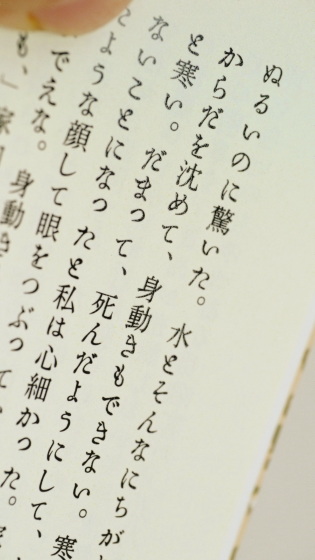 ぬるいのに驚いた。水とそんなにちが
からだを沈めて、身動きもできない。寒
と寒い。だまって、死んだようにして、
ないことになったと私は心細かった。
ような顔して眼をつぶって、
でえな。身動き
も、」